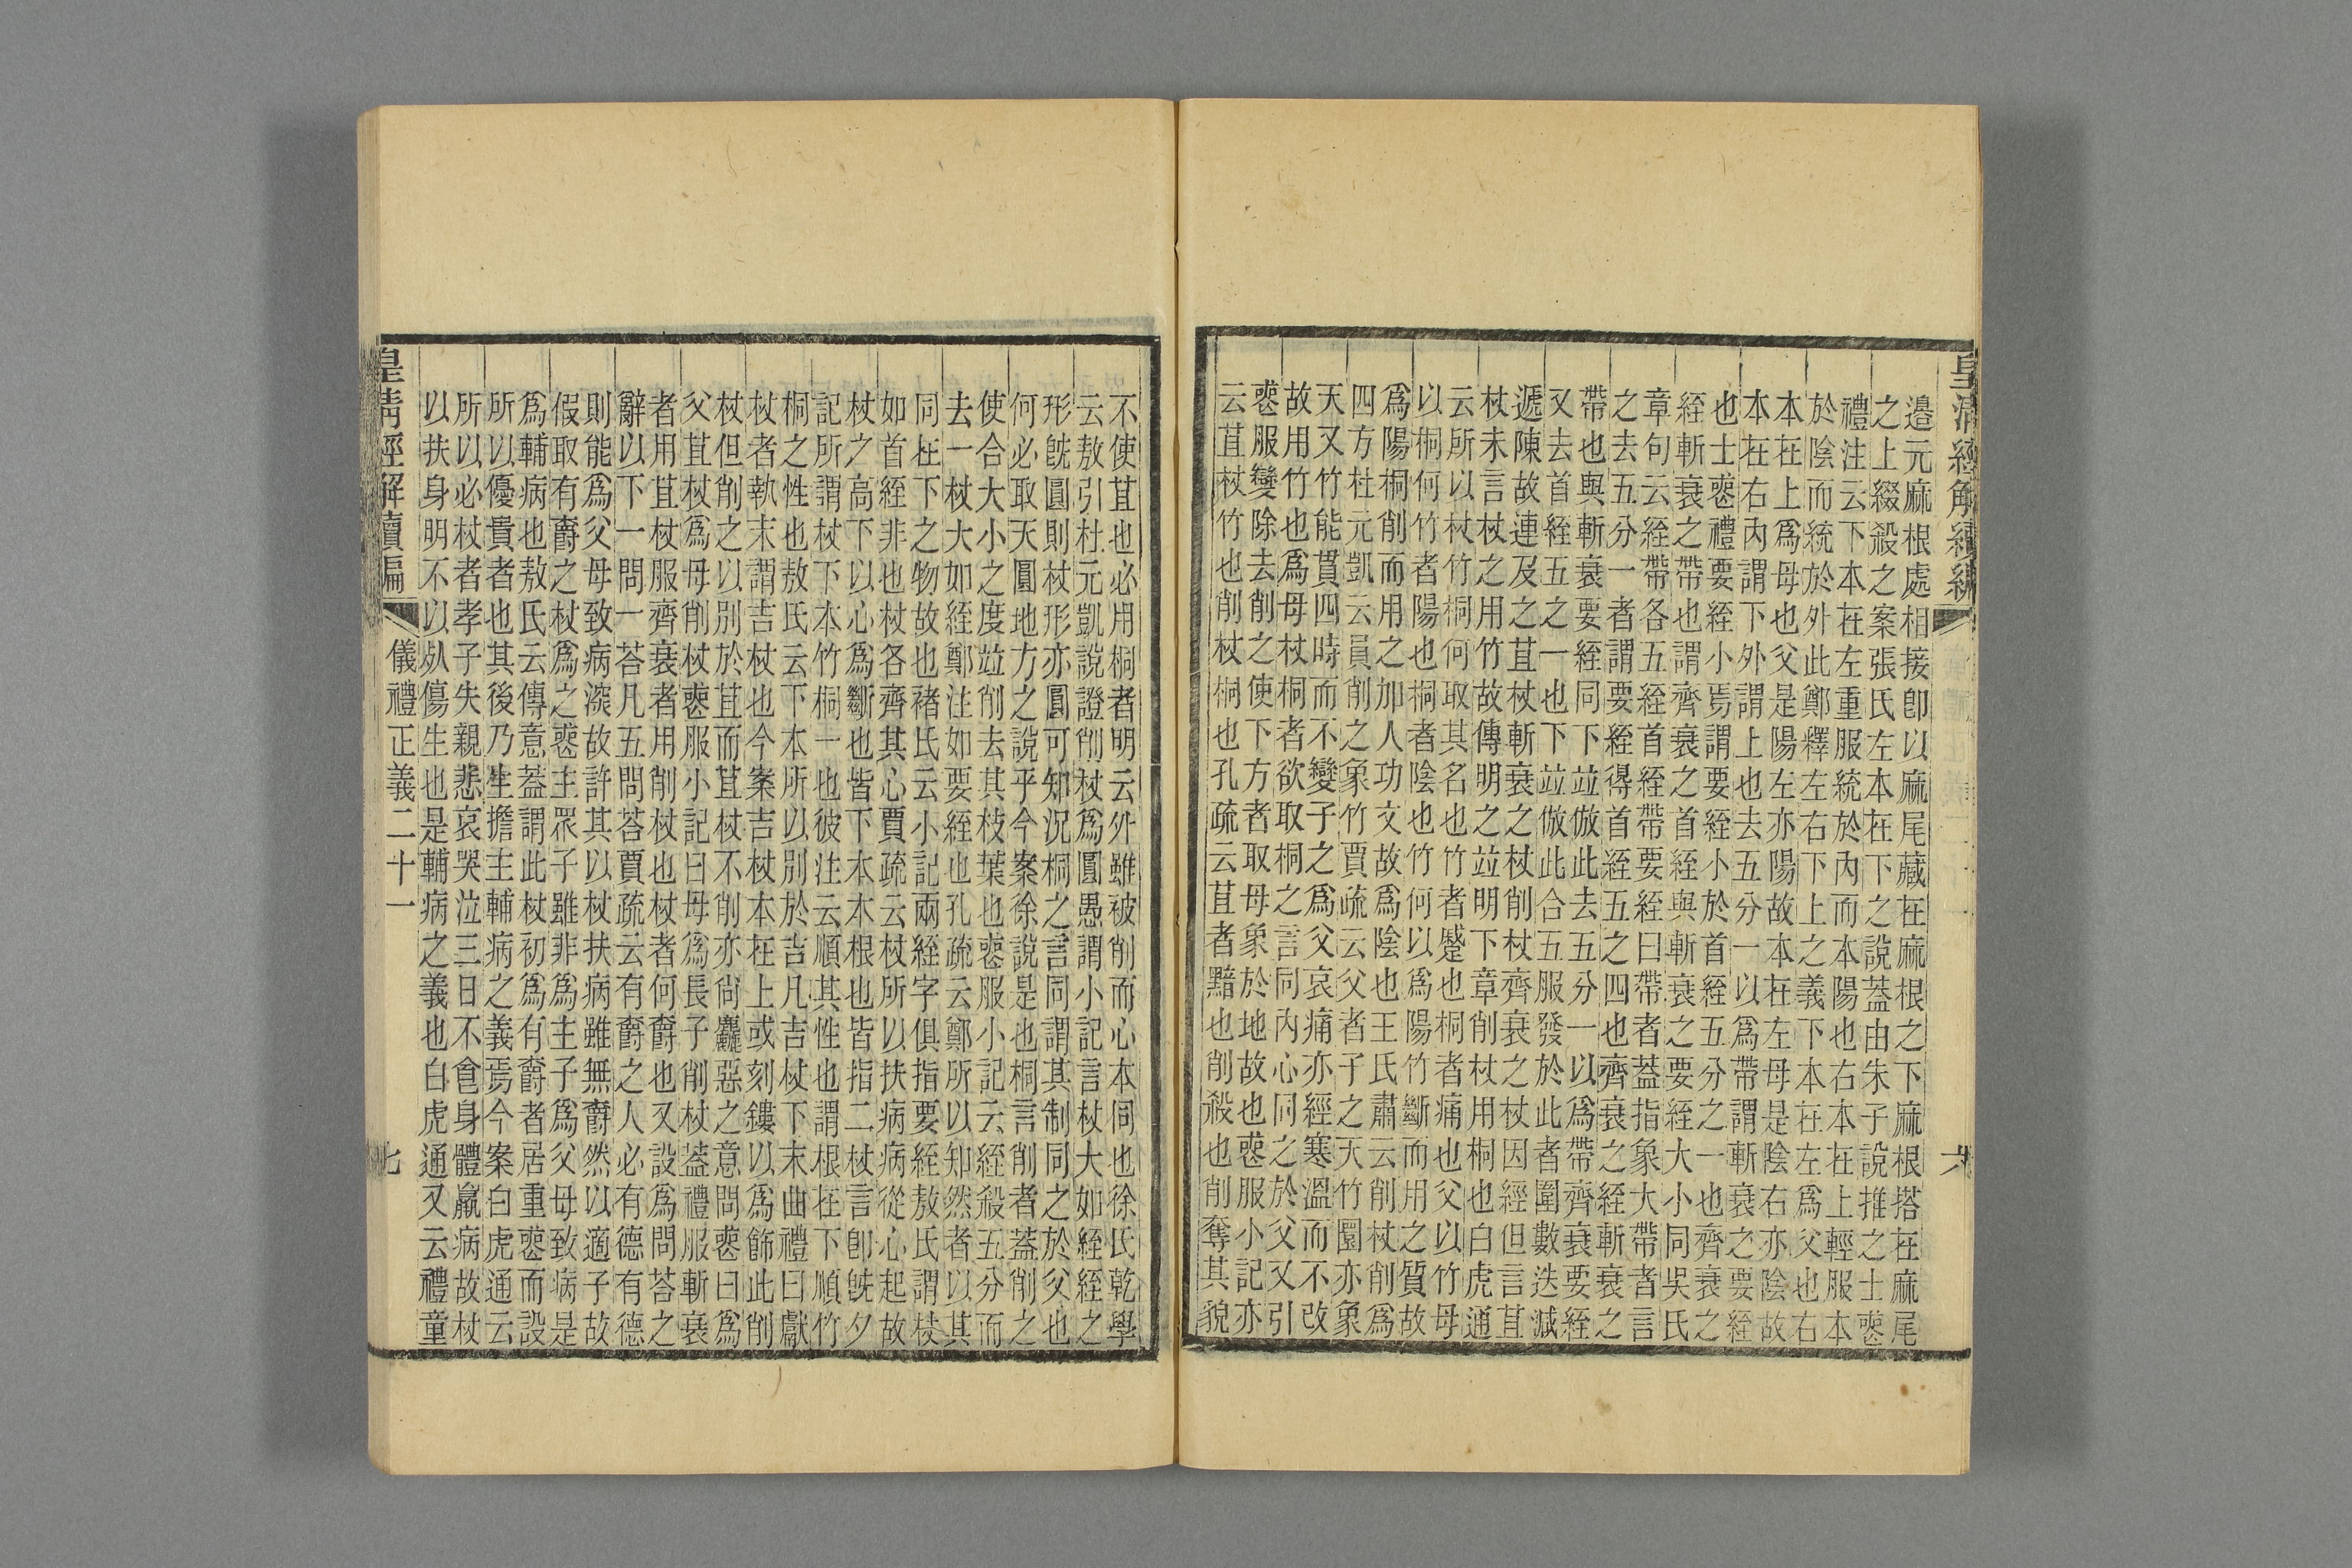 皇清經解續編
六
邉元麻根處相接卽以麻尾藏在麻根之下麻根搭在麻尾
之上綴殺之案張氏左本在下之說蓋由朱子說推之士喪
禮注云下本在左重服統於內而本陽也右本在上輕服本
於陰而統於外此鄭釋左右下上之義下本在左爲父也右
本在上爲母也父是陽左亦陽故本在左母是陰右亦陰故
本在右內謂下外謂上也去五分一以爲帶謂斬衰之要絰
也士喪禮要絰小焉謂要絰小於首絰五分之一也齊衰之
絰斬衰之帶也謂齊衰之首絰與斬衰之要絰大小同吳氏
章句云絰帶各五絰首絰帶要絰曰帶者蓋指象大帶者言
之去五分一者謂要絰得首絰五之四也齊衰之絰斬衰之
帶也與斬衰要絰同下竝倣此去五分一以爲帶齊衰要絰
又去首絰五之一也下竝倣此合五服發於此者圍數迭減
遞陳故連及之苴杖斬衰之杖削杖齊衰之杖因經但言苴
杖未言杖之用竹故傳明之竝明下章削杖用桐也白虎通
云所以杖竹桐何取其名也竹者蹙也桐者痛也父以竹母
以桐何竹者陽也桐者陰也竹何以爲陽竹斷而用之質故
爲陽桐削而用之加人功文故爲陰也王氏肅云削杖削爲
四方杜元凱云員削之象竹賈疏云父者子之天竹圓亦象
天又竹能貫四時而不變子之爲父哀痛亦經寒溫而不改
故用竹也爲母杖桐者欲取桐之言同內心同之於父又引
喪服變除去削之使下方者取母象於地故也喪服小記亦
云苴杖竹也削杖桐也孔疏云苴者黯也削殺也削奪其貌
不使苴也必用桐者明云外雖被削而心本同也徐氏乾學
云敖引杜元凱說證削杖爲圓愚謂小記言杖大如絰絰之
形旣圓則杖形亦圓可知況桐之言同謂其制同之於父也
何必取天圓地方之說乎今案徐說是也桐言削者蓋削之
使合大小之度竝削去其枝葉也喪服小記云絰殺五分而
去一杖大如絰鄭注如要絰也孔疏云鄭所以知然者以其
同在下之物故也褚氏云小記兩絰字俱指要絰敖氏謂杖
如首絰非也杖各齊其心賈疏云杖所以扶病病從心起故
杖之高下以心爲斷也皆下本本根也皆指二杖言卽旣夕
記所謂杖下本竹桐一也彼注云順其性也謂根在下順竹
桐之性也敖氏云下本所以別於吉凡吉杖下末曲禮曰獻
杖者執末謂吉杖也今案吉杖本在上或刻鏤以爲飾此削
杖但削之以別於苴而苴杖不削亦尙麤惡之意問喪曰爲
父苴杖爲母削杖喪服小記曰母爲長子削杖蓋禮服斬衰
者用苴杖服齊衰者用削杖也杖者何爵也又設爲問荅之
辭以下一問一荅凡五問荅賈疏云有爵之人必有德有德
則能爲父母致病深故許其以杖扶病雖無爵然以適子故
假取有爵之杖爲之喪主眾子雖非爲主子爲父母致病是
爲輔病也敖氏云傳意蓋謂此杖初爲有爵者居重喪而設
所以優貴者也其後乃生擔主輔病之義焉今案白虎通云
所以必杖者孝子失親悲哀哭泣三日不食身體羸病故杖
以扶身明不以死傷生也是輔病之義也白虎通又云禮童
皇清經解續編
儀禮正義二十一
七